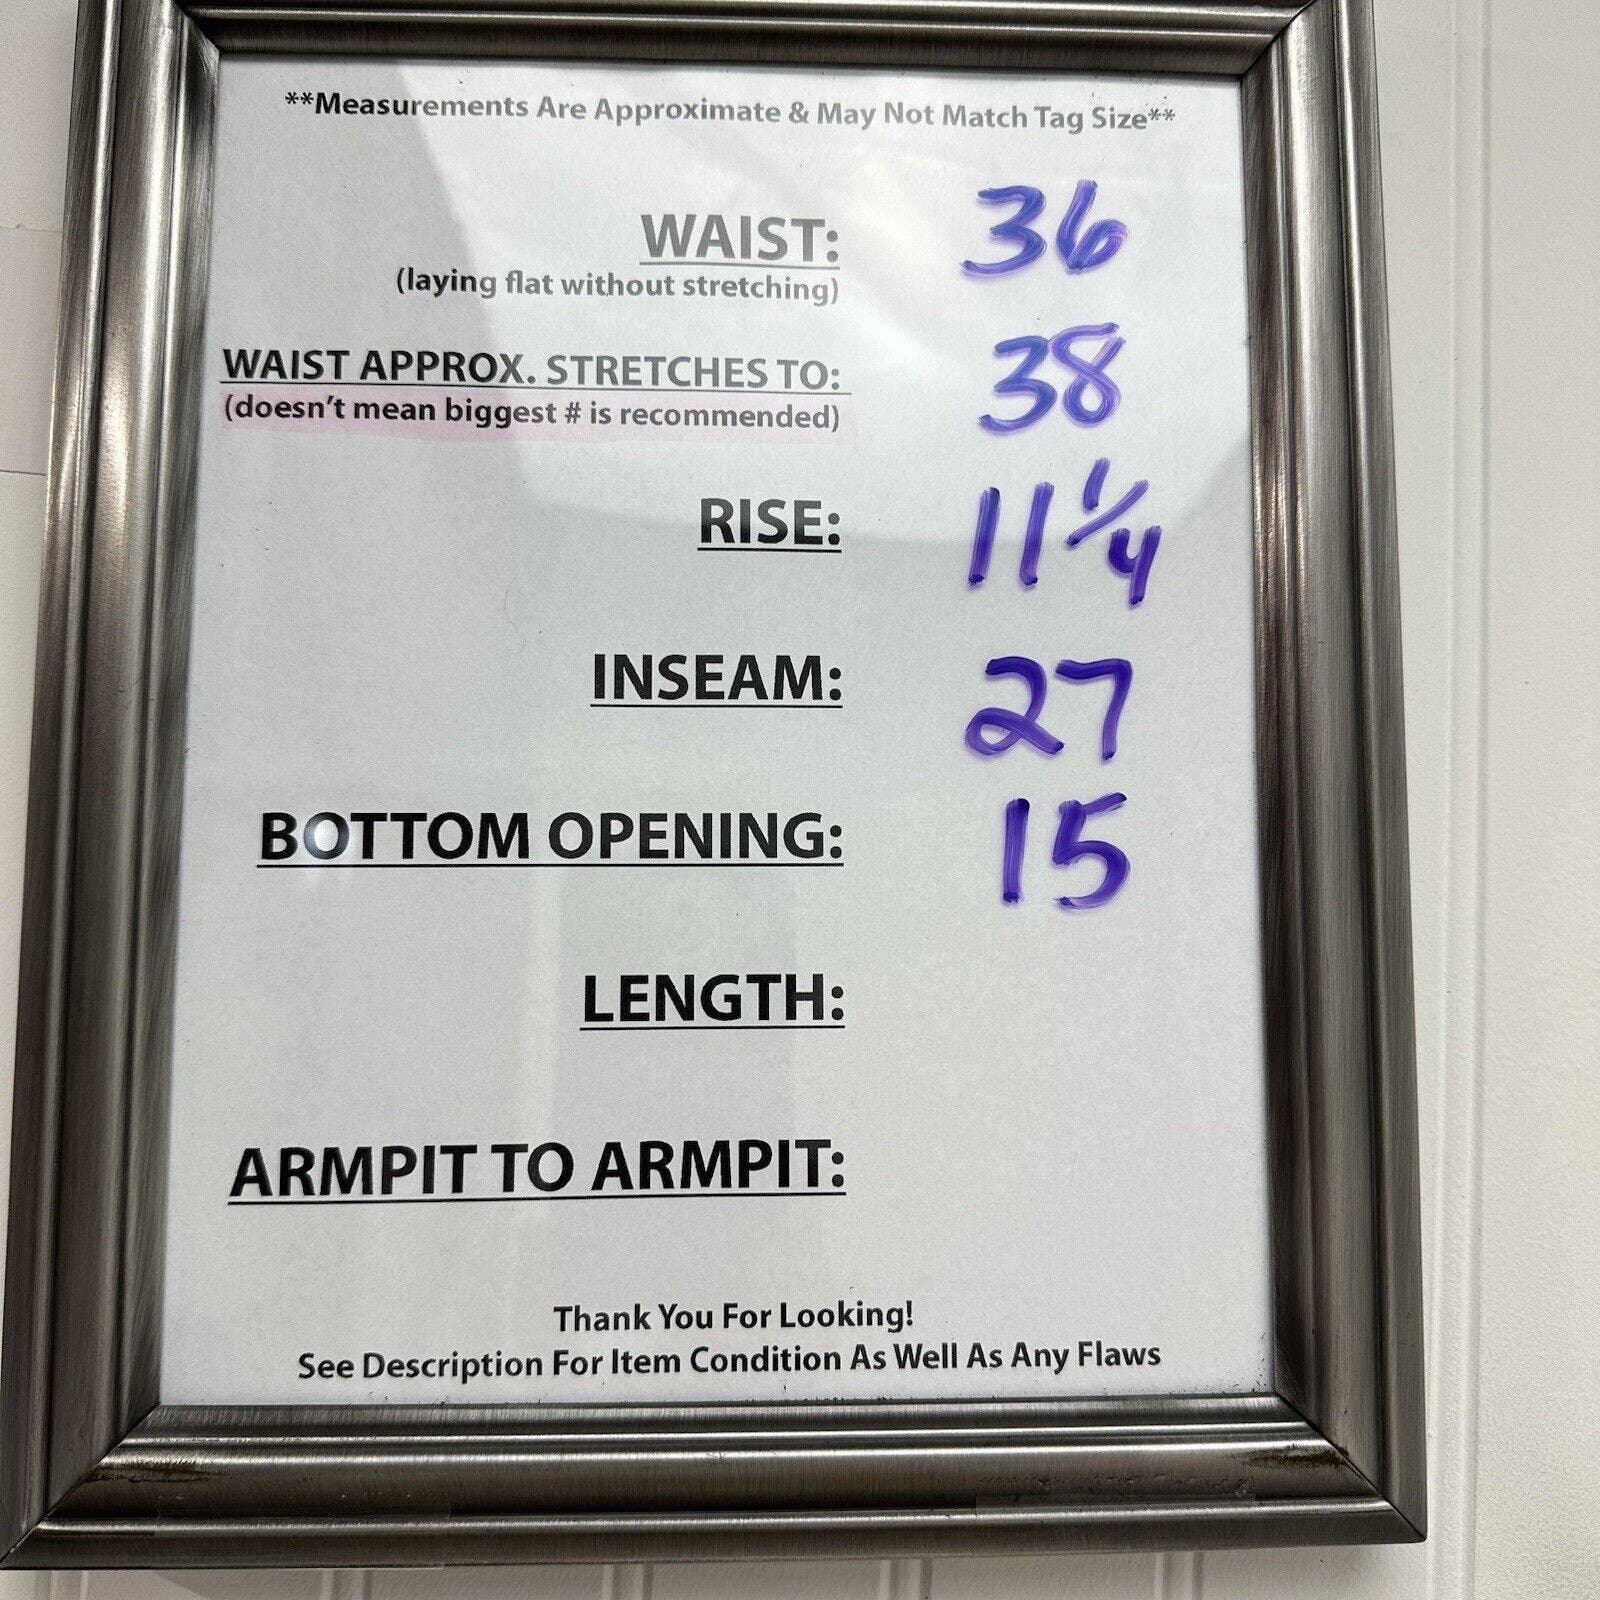 **Measurements Are Approximate & May Not Match Tag Size**
WAIST: 36
(laying flat without stretching)
WAIST APPROX. STRETCHES TO: 38
(doesn't mean biggest # is recommended)
RISE: 11 1/4
INSEAM: 27
BOTTOM OPENING: 15
LENGTH:
ARMPIT TO ARMPIT:
Thank You For Looking!
See Description For Item Condition As Well As Any Flaws